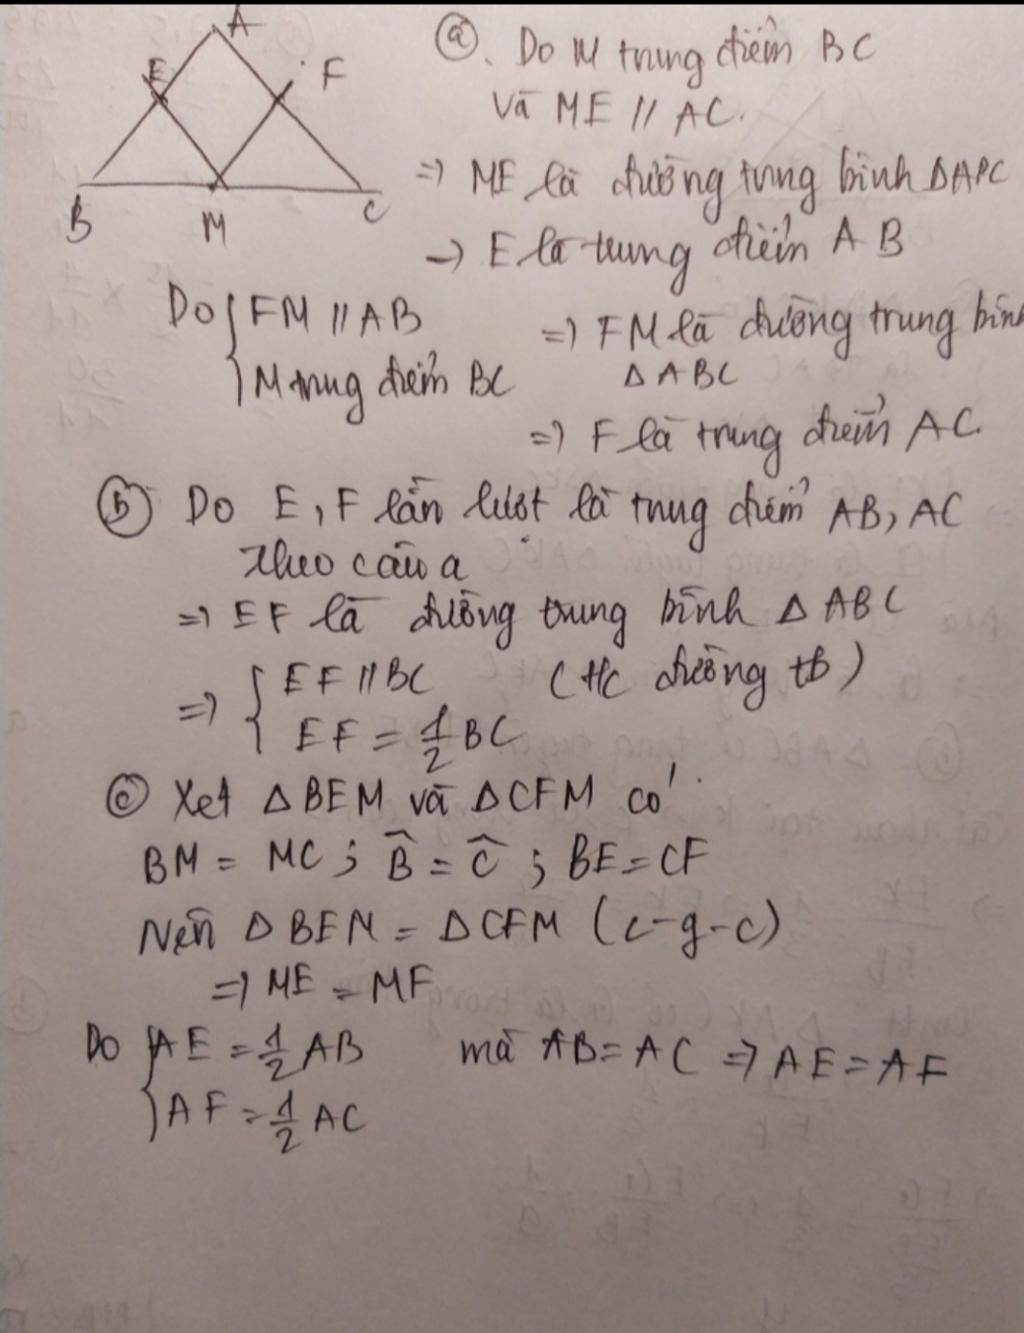 A
E
F
B
M
C
ⓐ. Do M trung điểm BC
và ME // AC.
=> ME là đường trung bình ΔABC
-> E là trung điểm AB
Do { FM // AB => FM là đường trung bình
M trung điểm BC ΔABC
=> F là trung điểm AC.
ⓑ Do E, F lần lượt là trung điểm AB, AC
theo câu a
=> EF là đường trung bình ΔABC
=> { EF // BC (t/c đường tb)
EF = 1/2 BC
ⓒ Xét ΔBEM và ΔCFM có
BM = MC ; B̂ = Ĉ ; BE = CF
Nên ΔBEM = ΔCFM (c-g-c)
=> ME = MF
Do { AE = 1/2 AB mà AB = AC => AE = AF
AF = 1/2 AC